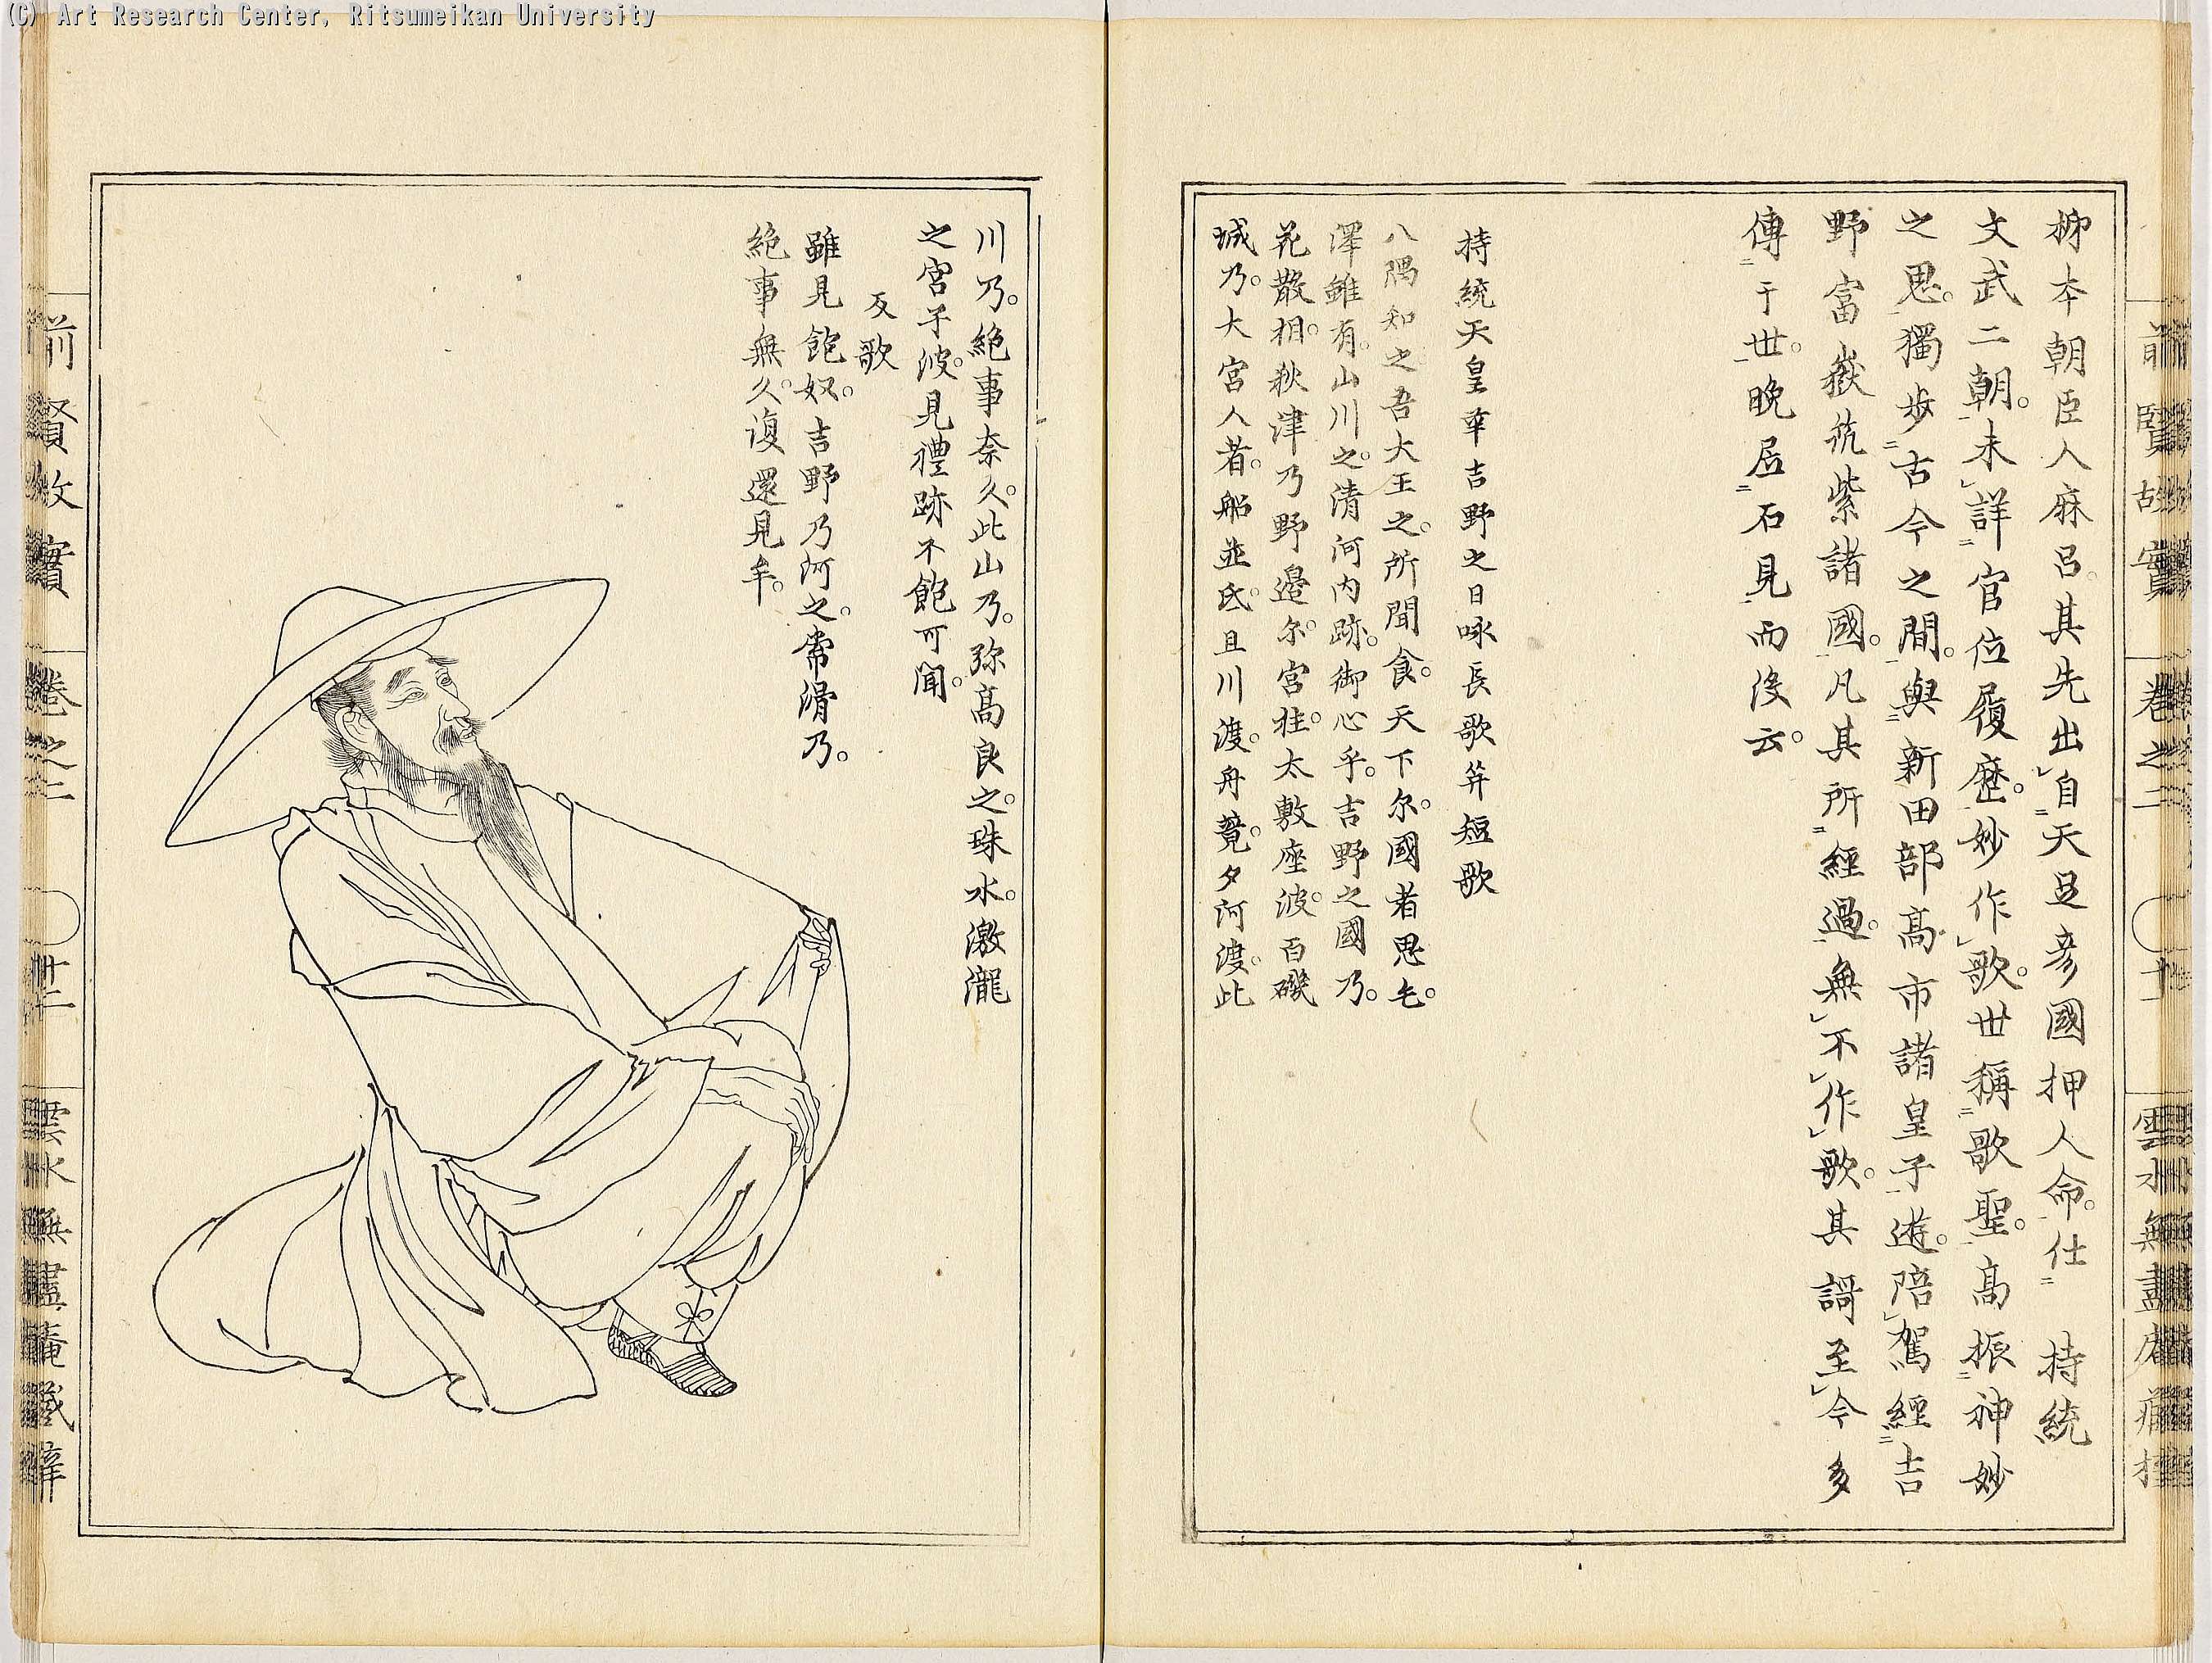 (C) Art Research Center, Ritsumeikan University
柿本朝臣人麻呂。其先出自天足彦國押人命。仕 持統
文武二朝。未詳官位履歴。妙作歌。世稱歌聖。高振神妙
之思。獨歩古今之間。與新田部高市諸皇子遊。陪駕經吉
野富嶽筑紫諸國。凡其所經過。無不作歌。其謌至今多
傳于世。晩居石見而没云。
持統天皇幸吉野之日咏長歌并短歌
八隅知之吾大王之。所聞食。天下尓。國者思乇。
澤雖有。山川之。清河内跡。御心乎。吉野之國乃。
花散相。秋津乃野邉尓。宮柱。太敷座波。百磯
城乃。大宮人者。船並氐。且川渡。舟竟。夕河渡。此
川乃。絶事奈久。此山乃。弥高良之。珠水。激瀧
之宮子波。見禮跡不飽可聞。
反歌
雖見飽奴。吉野乃河之。常滑乃。
絶事無久。復還見牟。
前賢故實 卷之二 雲水無盡庵
前賢故實 卷之二 廿二 雲水無盡庵藏